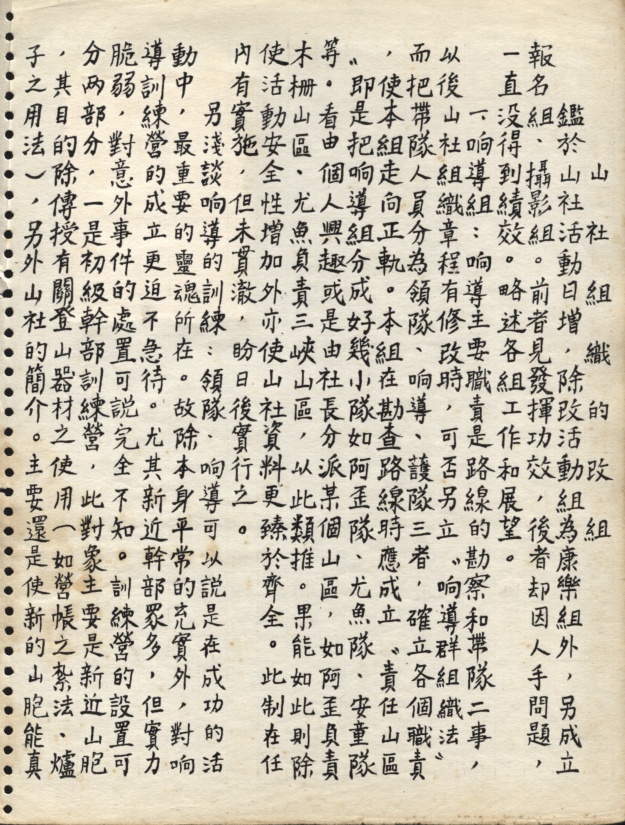 山社組織的改組
鑑於山社活動日增，除改活動組為康樂組外，另成立
報名組、攝影組。前者見發揮功效，後者却因人手問題，
一直没得到績效。略述各組工作和展望。
一、响導組：响導主要職責是路線的勘察和帶隊二事，
以後山社組織章程有修改時，可否另立〝响導群組織法〞
而把帶隊人員分為領隊、响導、護隊三者，確立各個職責
，使本組走向正軌。本組在勘查路線時應成立〝責任山區
〞即是把响導組分成好幾小隊如阿歪隊、尤魚隊、安童隊
等。看由個人興趣或是由社長分派某個山區，如阿歪負責
木柵山區、尤魚負責三峽山區，以此類推。果能如此則除
使活動安全性增加外亦使山社資料更臻於齊全。此制在任
內有實施，但未貫澈，盼日後實行之。
另淺談响導的訓練：領隊、响導可以說是在成功的活
動中，最重要的靈魂所在。故除本身平常的充實外，對响
導訓練營的成立更迫不急待。尤其新近幹部眾多，但實力
脆弱，對意外事件的處置可説完全不知。訓練營的設置可
分两部分，一是初級幹部訓練營，此對象主要是新近山胞
，其目的除傳授有關登山器材之使用（如營帳之紮法、爐
子之用法），另外山社的簡介。主要還是使新的山胞能真